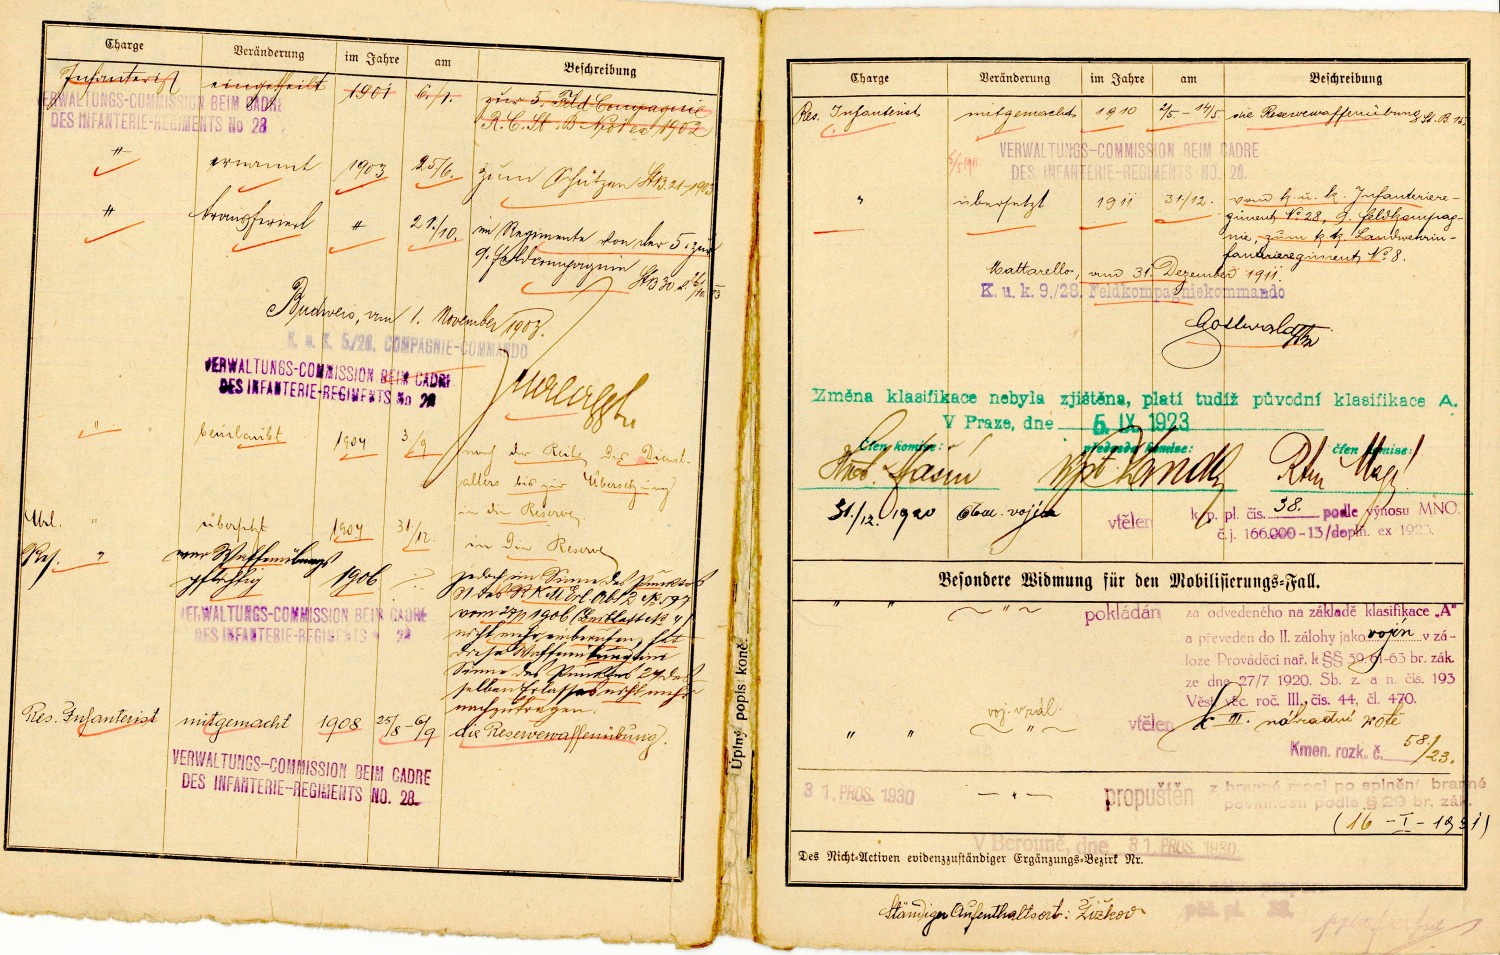 Charge Veränderung im Jahre am Beschreibung
Infanterist eingetheilt 1901 6./1. zur 5. Feld Compagnie
VERWALTUNGS-COMMISSION BEIM CADRE
DES INFANTERIE-REGIMENTS No 28
R.C. St. B 1902
" ernannt 1903 25/6. zum Schützen StB. 21-1903
" transferiert " 21./10. im Regimente von der 5. zur
9. Feldcompagnie StB 30
Budweis, am 1. November 1903.
K. u. K. 5/28. COMPAGNIE-COMMANDO
VERWALTUNGS-COMMISSION BEIM CADRE
DES INFANTERIE-REGIMENTS No 28
" beurlaubt 1904 3/9 nach der Reihe des Dienst-
alters bis zur Übersetzung
in die Reserve
Url. " übersetzt 1904 31/12. in die Reserve
Res. " war Waffenübungs
pflichtig 1906 jedoch im Sinne des Punktes
VERWALTUNGS-COMMISSION BEIM CADRE
DES INFANTERIE-REGIMENTS 28
nicht mehr einberufen
diese Waffenübung im
Sinne des Punktes 24 des-
selben Erlasses nicht mehr
nachzutragen.
Res. Infanterist mitgemacht 1908 25/8 - 6/9 die Reservewaffenübung.
VERWALTUNGS-COMMISSION BEIM CADRE
DES INFANTERIE-REGIMENTS NO. 28.
Úplný popis koně:
Charge Veränderung im Jahre am Beschreibung
Res. Infanterist mitgemacht 1910 2/5. - 14/5. die Reservewaffenübung St. B 15.
VERWALTUNGS-COMMISSION BEIM CADRE
DES INFANTERIE-REGIMENTS NO. 28.
" übersetzt 1911 31/12. vom k. u. k. Infanteriere-
giment No 28, 9. Feldkompag-
nie, zum k. k. Landwehrin-
fanterieregiment No 8.
Mattarello, am 31. Dezember 1911
K. u. k. 9./28. Feldkompagniekommando
Gottwald
Změna klasifikace nebyla zjištěna, platí tudíž původní klasifikace A.
V Praze, dne 5. IX. 1923
Člen komise: předseda komise: člen komise:
31./12. 1920 vojín vtělen k p. pl. čís. 38. podle výnosu MNO.
č.j. 166.000-13/doplň. ex 1923.
Besondere Widmung für den Mobilisierungs-Fall.
" " " pokládán za odvedeného na základě klasifikace „A"
a převeden do II. zálohy jako vojín v zá-
loze Prováděcí nař. k §§ 59, 61-63 br. zák.
ze dne 27/7 1920. Sb. z. a n. čís. 193
Věst. věc. roč. III., čís. 44, čl. 470.
voj. v zál.
" " " vtělen k III. náhradní rotě
Kmen. rozk. č. 58/23.
31. PROS. 1930 " propuštěn z branné moci po splnění branné
povinnosti podle § 29 br. zák.
(16 - I - 1931)
V Berouně, dne 31. PROS. 1930.
Des Nicht-Activen evidenzzuständiger Ergänzungs-Bezirk Nr.
Ständiger Aufenthaltsort: Žižkov
pěš. pl. 38.